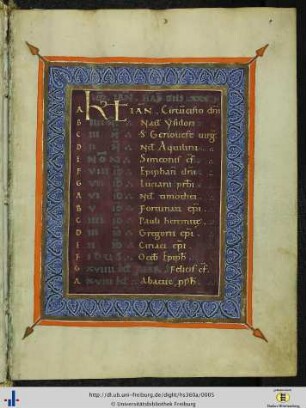 IAN. HAB DIES XXXI
A KL IAN. Circūcisio dni
B Nat Ysidori
C III N S Genouefe uirg
D II N Nat Aquilini
E NON Simeonis cf.
F VIII ID Epiphan dni
G VII ID Luciani prbi
A VI ID Nat timothei
B V ID Fortunati epi
C IIII ID Pauli heremite
D III ID Gregorii epi
E II ID Ciriaci epi
F IDUS Oct Epiph
G XVIIII KL FEBR. Felicis cf.
A XVIII KL Abacuc pph
http://dl.ub.uni-freiburg.de/diglit/hs360a/0005
© Universitätsbibliothek Freiburg